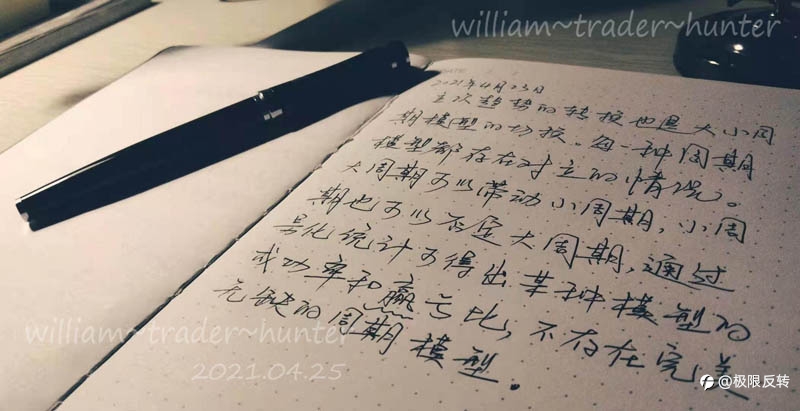 william~trader~hunter
2021年4月23日
主次趋势的转换也是大小周
期模型的切换。每一种周期
模型都存在对立的情况。
大周期可以带动小周期，小周
期也可以否定大周期，通过
量化统计可得出某种模型的
成功率和赢亏比，不存在完美
无缺的周期模型。
william~trader~hunter
2021.04.25
@极限反转